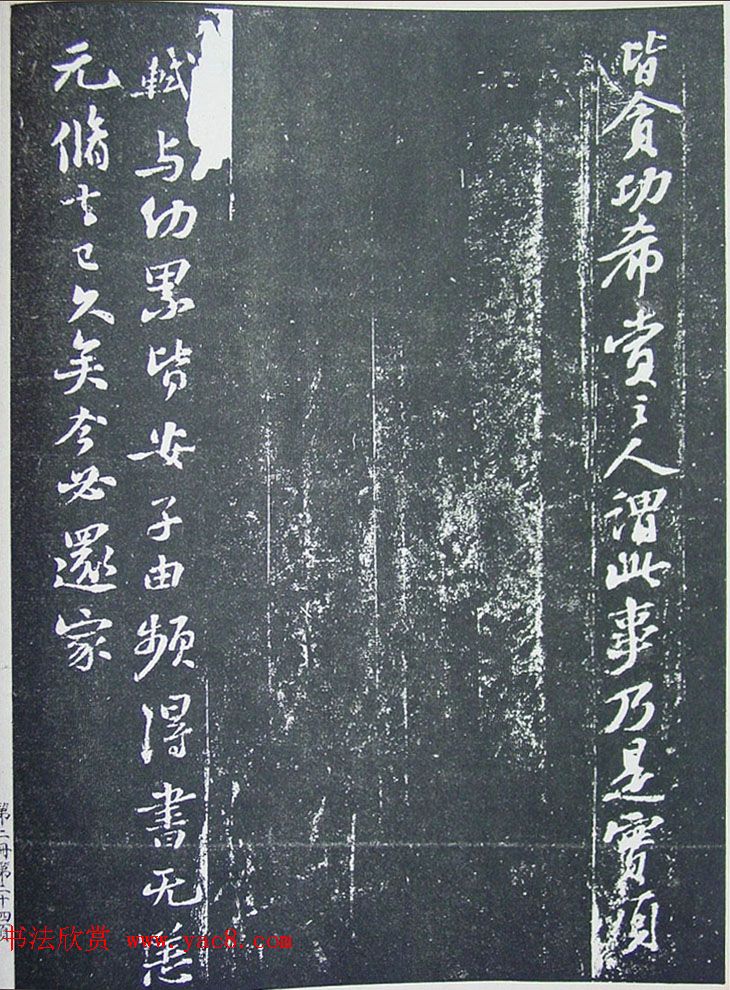 皆貪功希賞之人謂此事乃是實頃
軾与幼累皆安子由頻得書无恙
元脩去已久矣今必還家
第二冊第二十四
书法欣赏 www.yac8.com